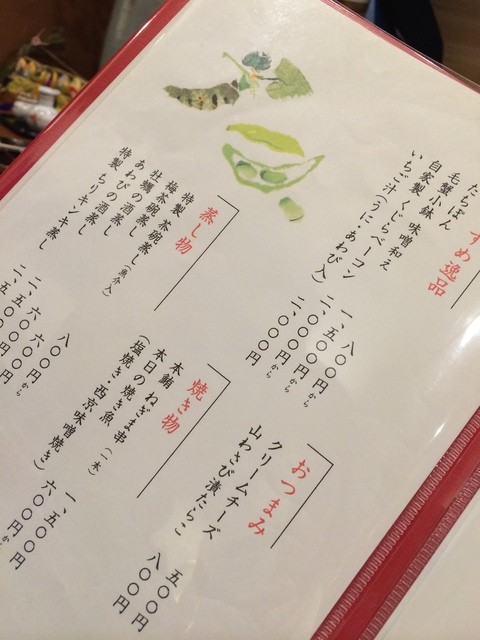 すめ逸品
たちぽん
毛蟹小鉢 味噌和え
自家製くじらベーコン
いちご汁（うに・あわび入）
一、八〇〇円から
二、五〇〇円から
二、〇〇〇円
おつまみ
クリームチーズ
山わさび漬たらこ
五〇〇円
八〇〇円
蒸し物
特製 茶碗蒸し（魚介入）
梅茶碗蒸し
牡蠣の酒蒸し
あわびの酒蒸し
特製 ちりキンキ蒸し
八〇〇円
二、六〇〇円から
二、五〇〇円から
焼き物
本鮪 ねぎま串（一本）
本日の焼き魚
（塩焼き・西京味噌焼き）
六〇〇円から
一、五〇〇円